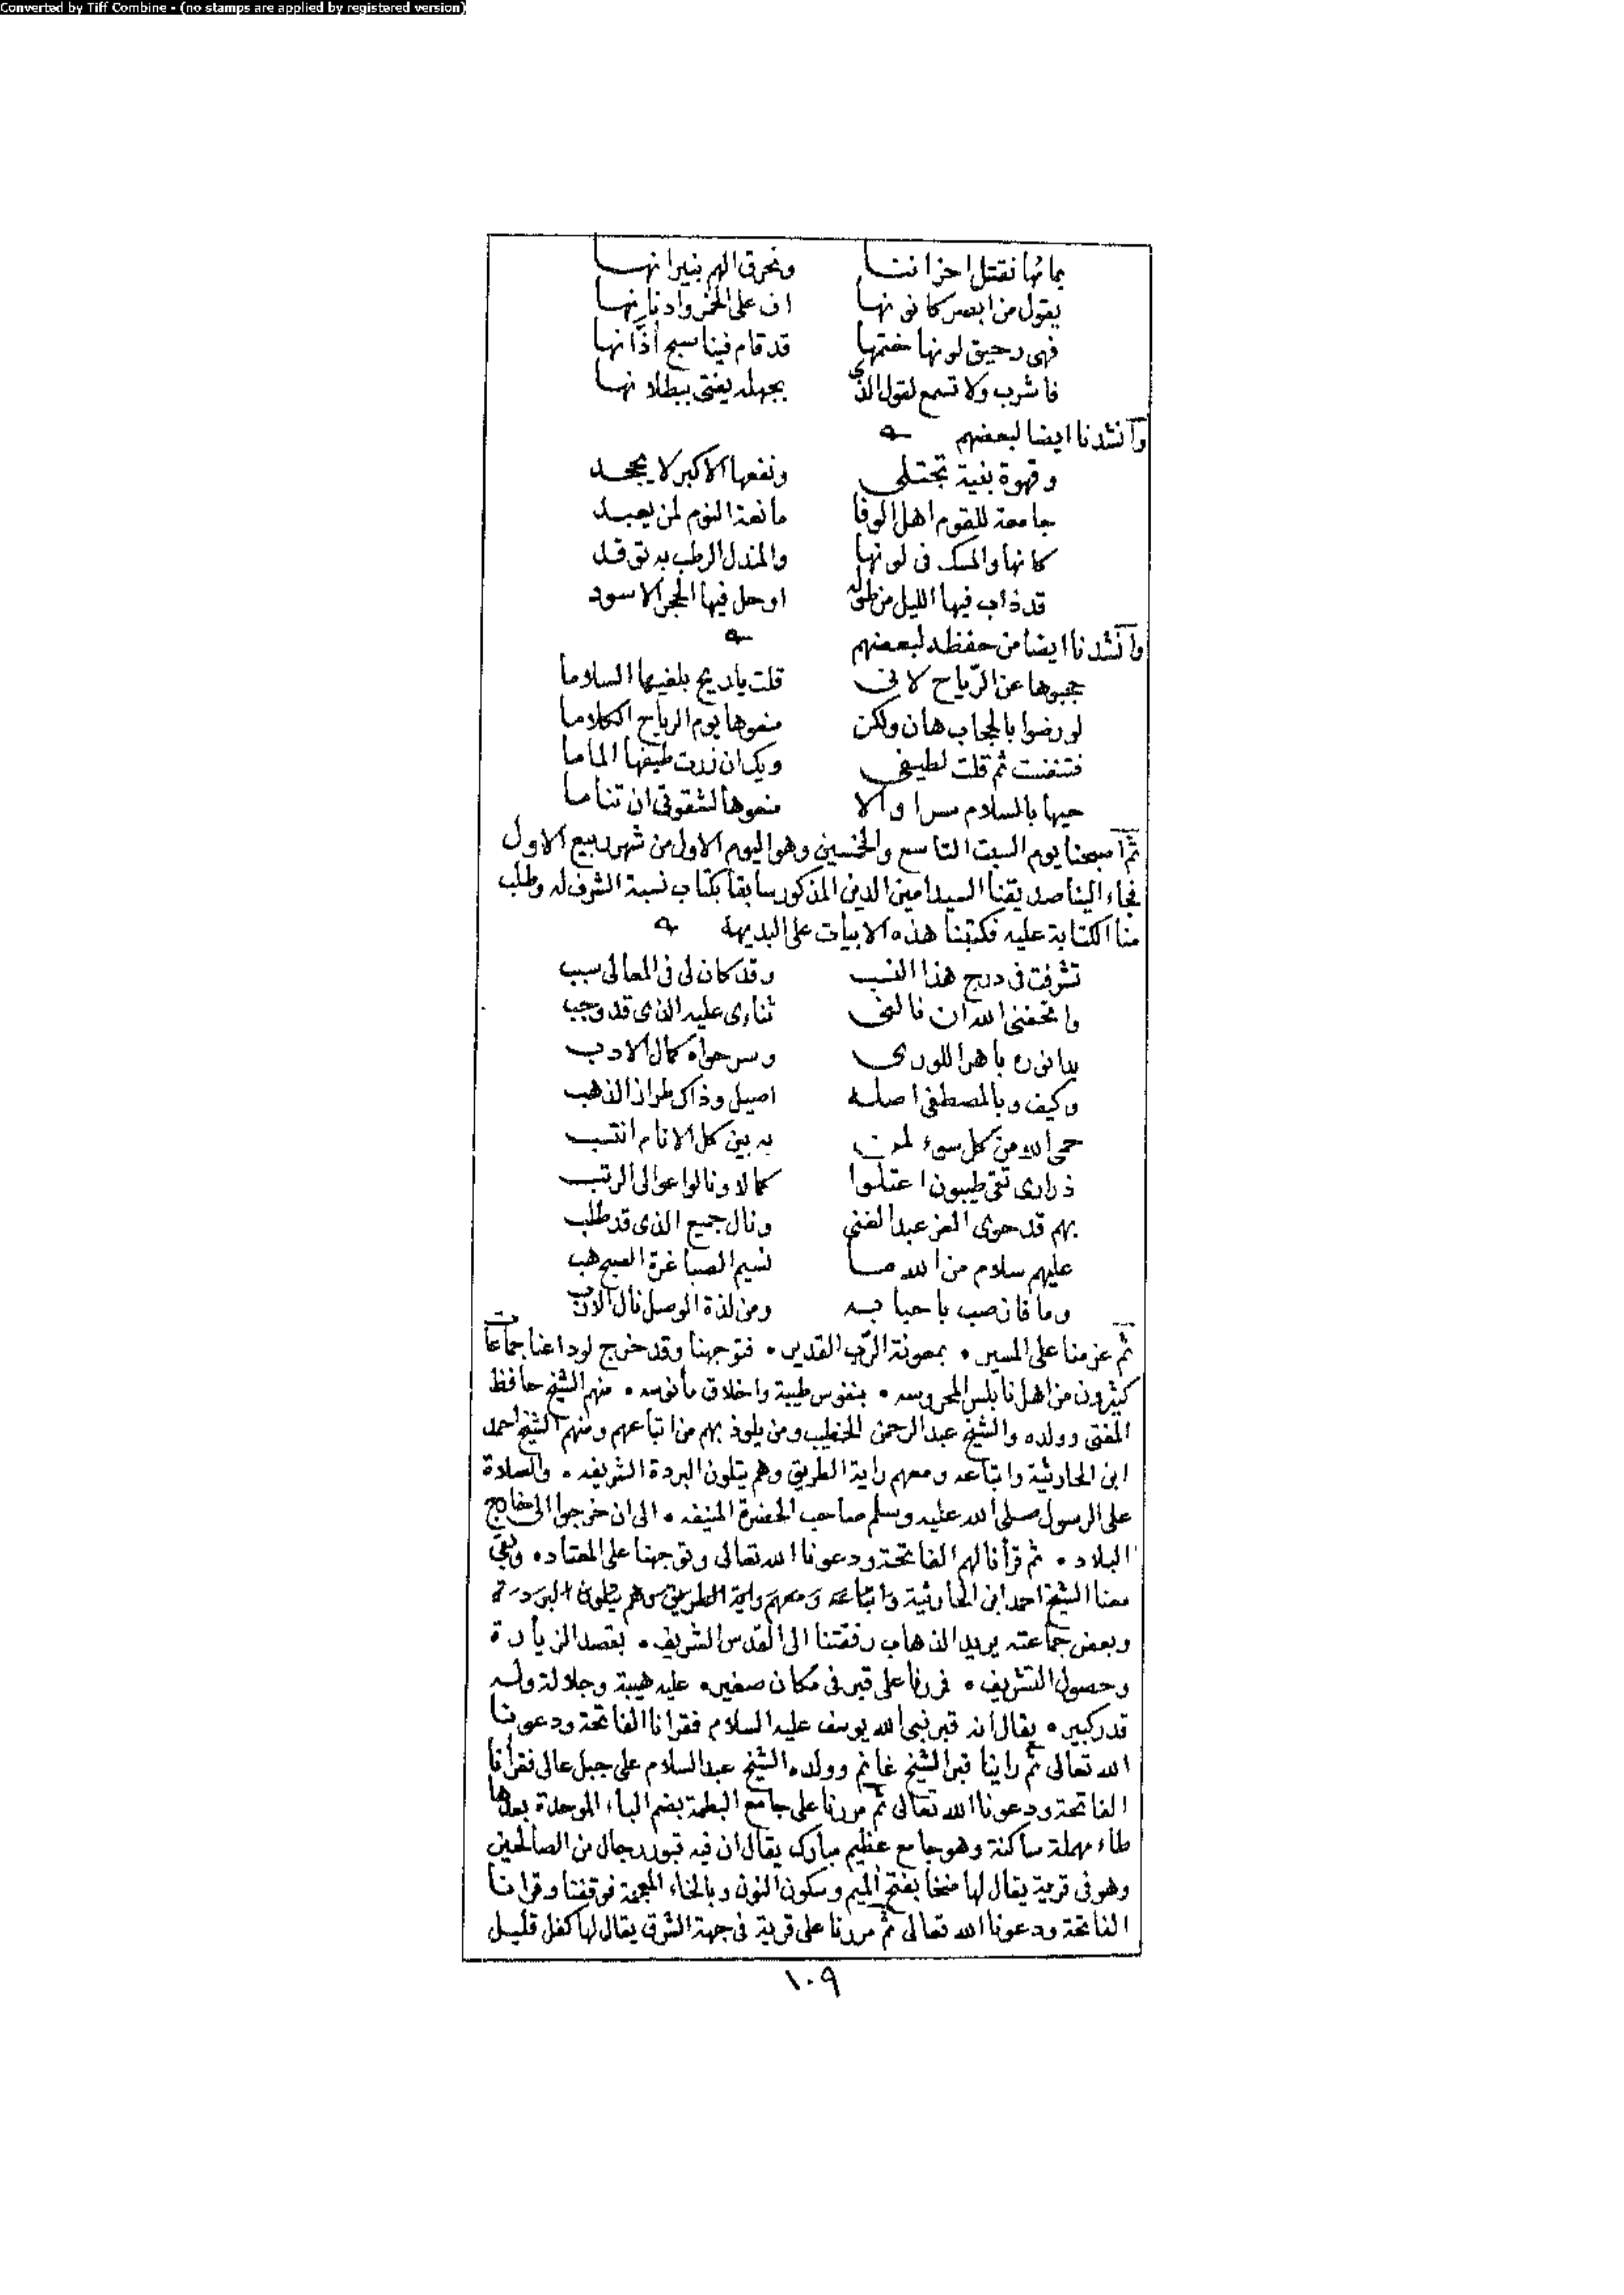 Converted by Tiff Combine - (no stamps are applied by registered version)
بمائها نقتل احزاننا ونحرق الهم بنيرانها
يقول من ابصر كانونها اف على الخمر وادنانها
فهى رحيق لونها ختمها قد قام فينا سبح آذانها
فاشرب ولا تسمع لقول الذى بجهله يفتى ببطلانها
وانشدنا ايضا لبعضهم
وقهوة بنية تجتلى ونفعها الاكبر لا يجحد
جامعة للقوم اهل الوفا مانعة النوم لمن يعبد
كانها والمسك فى لونها والمندل الرطب به توقد
قد ذاب فيها الليل من طوله اوحل فيها الحجر الاسود
وانشدنا ايضا من حفظه لبعضهم
حجبوها عن الرياح لانى قلت ياريح بلغيها السلاما
لو رضوا بالحجاب هان ولكن منعوها يوم الرياح الكلاما
فتنفست ثم قلت لطيفى ويك ان زرت طيفها الماما
حيها بالسلام سرا والا منعوها لشقوتى ان تناما
ثم اصبحنا يوم السبت التاسع والخمسين وهو اليوم الاول من شهر ربيع الاول
فجاء الينا صديقنا السيد امين الدين المذكور سابقا بكتاب نسبة الشرف له وطلب
منا الكتابة عليه فكتبنا هذه الابيات على البديهة
تشرفت فى درج هذا النسب وقد كان لى فى المعالى سبب
واتحفنى الله ان فالنى ثناءى عليه الذى قد وجب
بدا نوره باهرا للورى وسر حواه كمال الادب
وكيف وبالمصطفى اصله اصيل وذاك طراز الذهب
حمى الله من كل سوء لمن به بين كل الانام انتسب
ذرارى تقى طيبون اعتلوا كمالا ونالوا عوالى الرتب
بهم قد حوى العز عبد الغنى ونال جميع الذى قد طلب
عليهم سلام من الله ما نسيم الصبا غرة الصبح هب
وما فاز صب باحبابه ومن لذة الوصل نال الارب
ثم عزمنا على المسير • بمعونة الرب القدير • فتوجهنا وقد خرج لوداعنا جماعات
كثيرون من اهل نابلس المحروسه • بنفوس طيبة واخلاق مأنوسه • منهم الشيخ حافظ
المفتى وولده والشيخ عبد الرحمن الخطيب ومن يلوذ بهم من اتباعهم ومنهم الشيخ احمد
ابن الحارثية واتباعه ومعهم راية الطريق وهم يتلون البردة الشريفه • والصلاة
على الرسول صلى الله عليه وسلم صاحب الحضرة المنيفه • الى ان خرجوا الى خارج
البلاد • ثم قرأنا لهم الفاتحة ودعونا الله تعالى وتوجهنا على المعتاد • وبقى
معنا الشيخ احمد ابن الحارثية واتباعه ومعهم راية الطريق وهم يتلون البردة
وبعض جماعته يريد الذهاب رفقتنا الى القدس الشريف • بقصد الزيارة
وحصول التشريف • فمررنا على قبر فى مكان صغير • عليه هيبة وجلالة وله
قدر كبير • يقال انه قبر نبى الله يوسف عليه السلام فقرانا الفاتحة ودعونا
الله تعالى ثم راينا قبر الشيخ غانم وولده الشيخ عبد السلام على جبل عالى فقرأنا
الفاتحة ودعونا الله تعالى ثم مررنا على جامع البطمة بضم الباء الموحدة بعدها
طاء مهملة ساكنة وهو جامع عظيم مبارك يقال ان فيه قبور رجال من الصالحين
وهو فى قرية يقال لها منخا بفتح الميم وسكون النون وبالخاء المعجمة فوقفنا وقرانا
الفاتحة ودعونا الله تعالى ثم مررنا على قرية فى جهة الشرق يقال لها كفل قليل
١٠٩